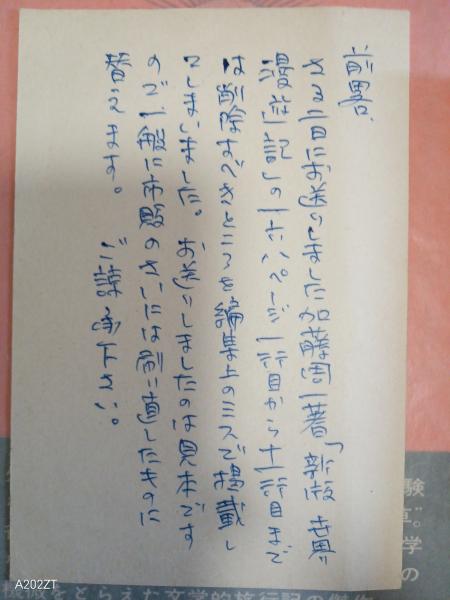 前略、
さる二日にお送りしました加藤周一著「新版 世界
漫遊記」の一六八ページ一行目から十一行目まで
は削除すべきところを編集上のミスで掲載し
てしまいました。お送りしましたのは見本です
ので、一般に市販のさいには刷り直したものに
替えます。 ご諒承下さい。
験
学
の
をとらえた文学的旅行記の傑作
A202ZT